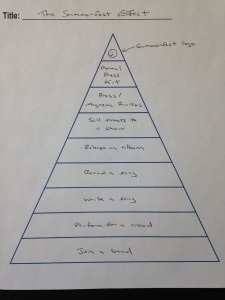 Title: The Summerfest Effect
Summerfest logo
Formal
Press
Kit
Press/
Magazine Profiles
Sell tickets to
a show
Release an album
Record a song
Write a song
Perform for a crowd
Join a band